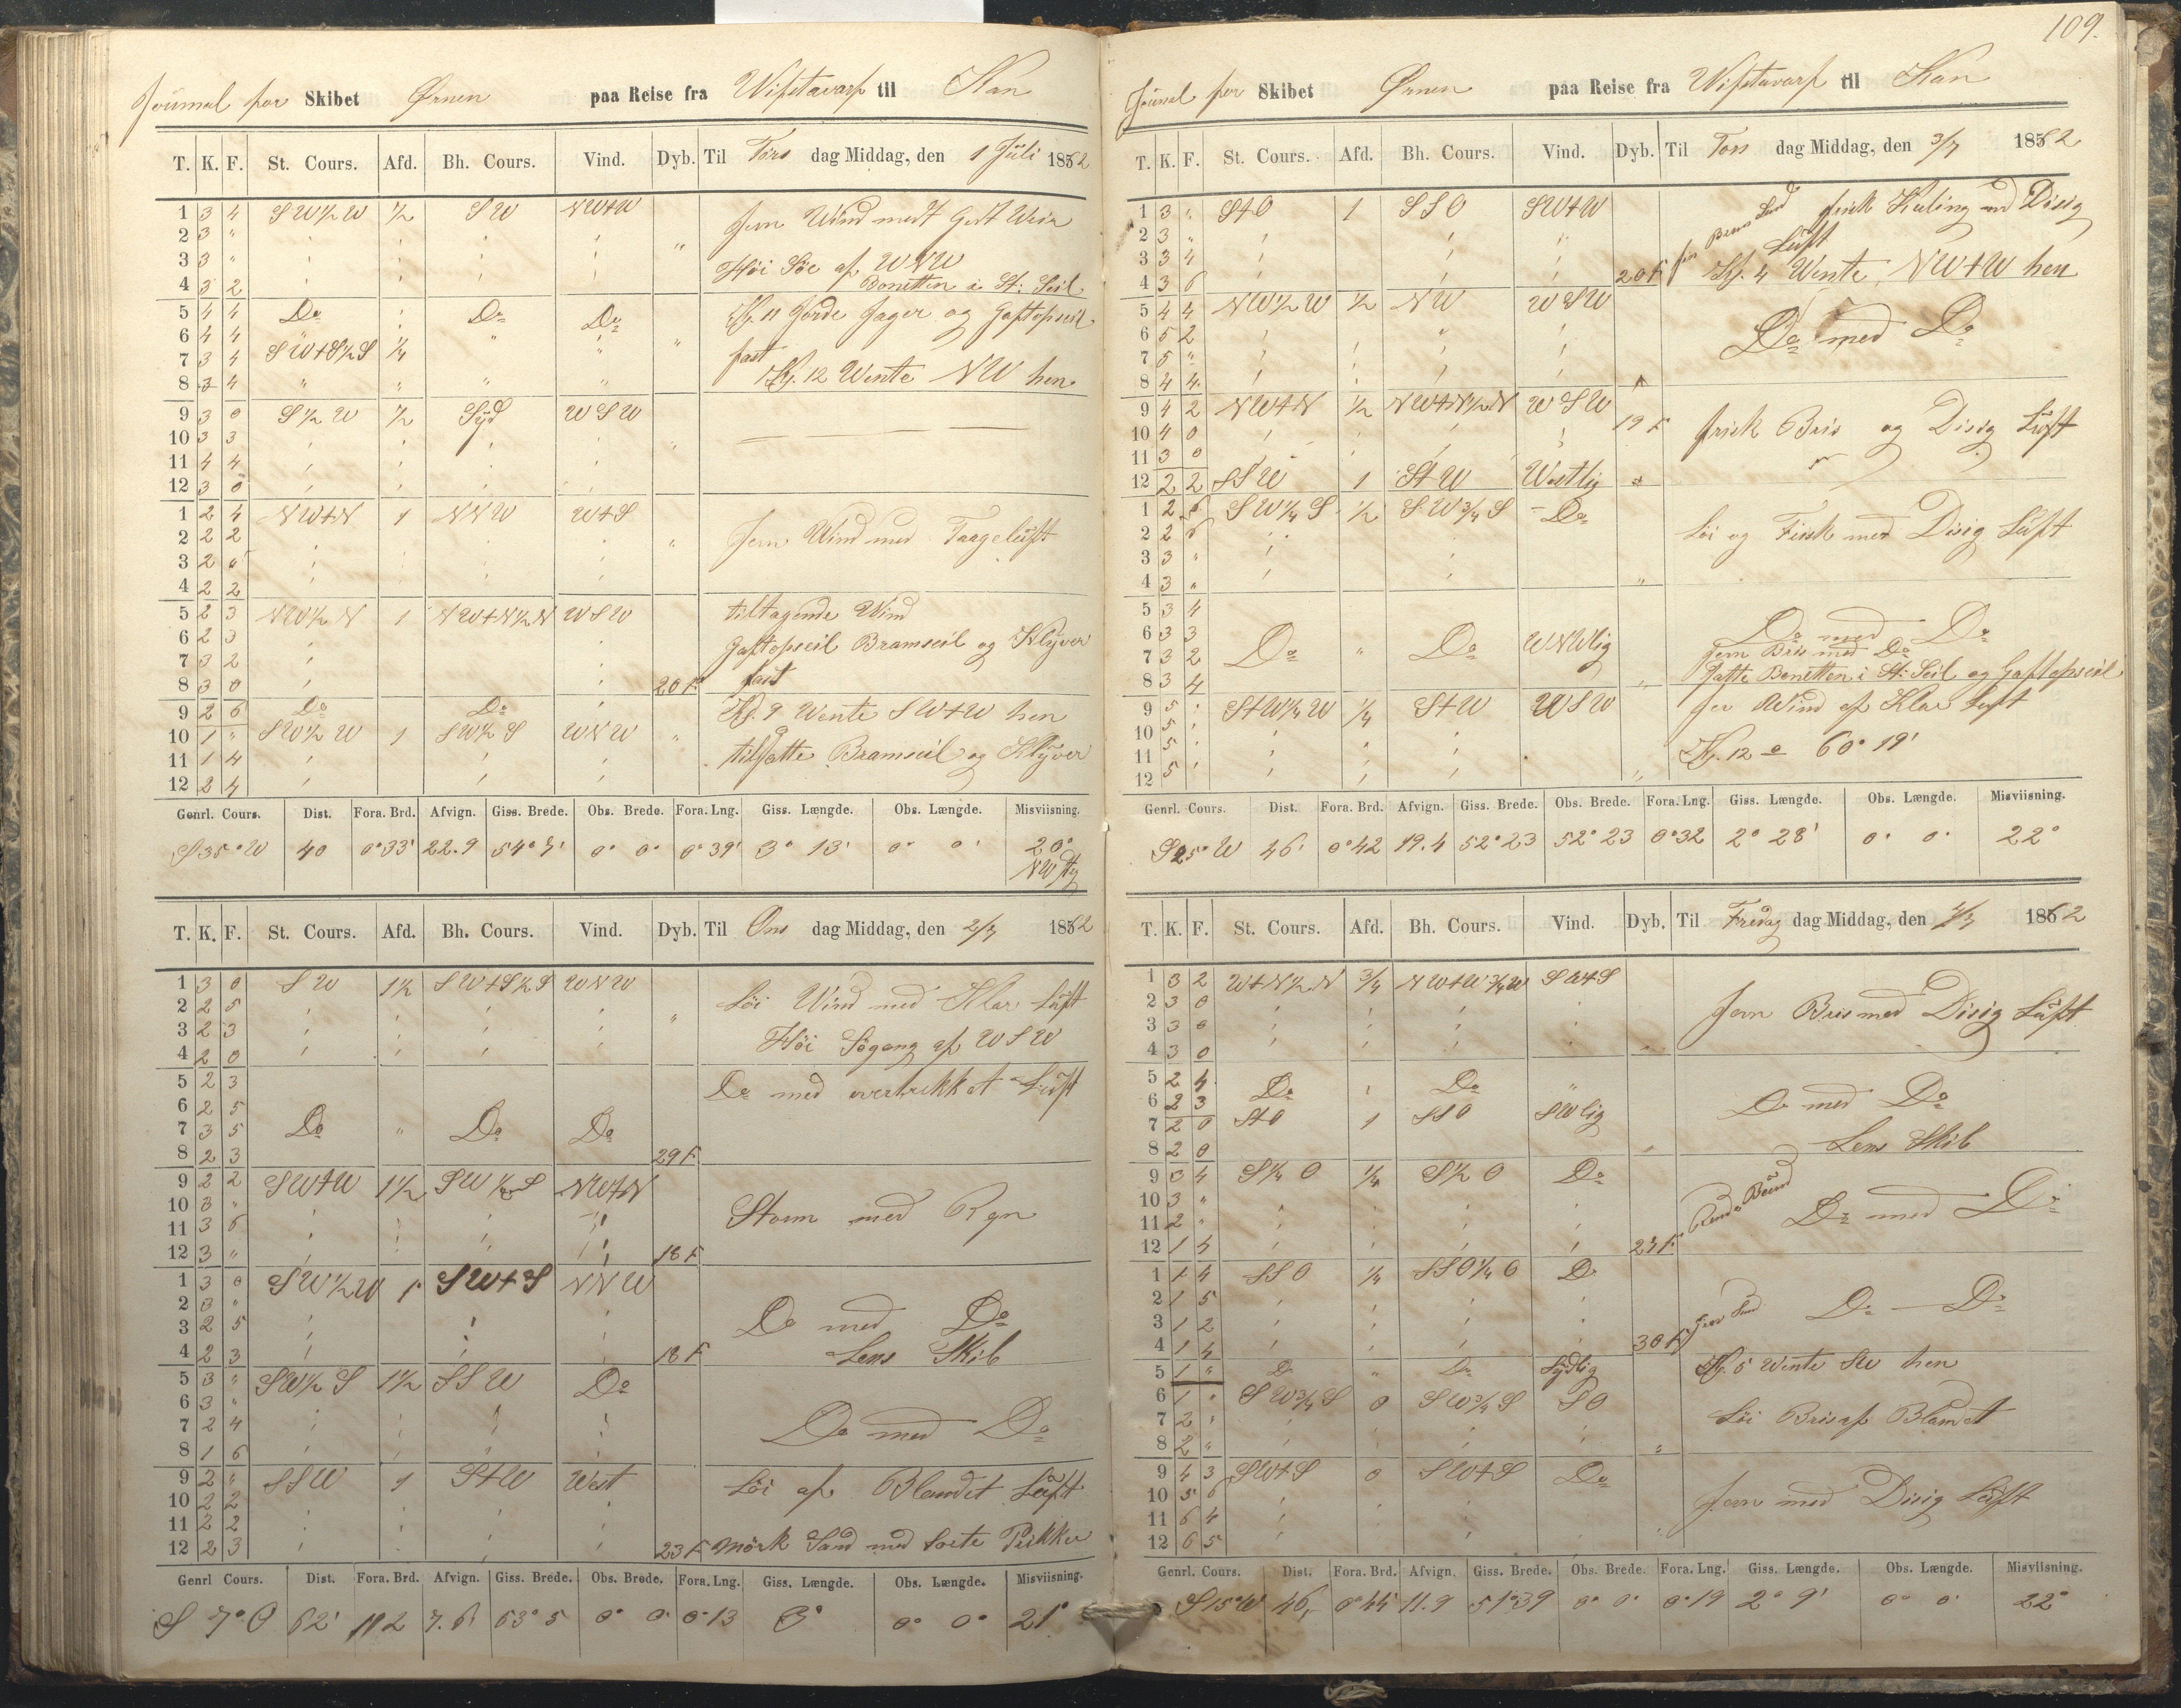 Journal for Skibet Ørnen paa Reise fra Wifstavarf til Kan
T. K. F. St. Cours. Afd. Bh. Cours. Vind. Dyb. Til Tirs dag Middag, den 1 Juli 1862
1 3 4 SW½W ½ SW NWtW Jevn Wind medt Godt Weir
2 3 "
3 3 " Høi Søe af WNW
4 3 2 Bonetten i St: Seil
5 4 4 Do Do Do Kl. 11 Gjorde Jager og Gaftopseil
6 4 4
7 3 4 SWtS½S ¼ fast
8 3 4 Kl. 12 Wente NW hen
9 3 0 S½W ½ Syd WSW
10 3 3
11 4 4
12 3 0
1 2 4 NWtN 1 NNW WtS
2 2 2 Jevn Wind med Taageluft
3 2 0
4 2 2
5 2 3 NW½N 1 NWtN½N WSW tiltagende Wind
6 2 3 Gaftopseil Bramseil og Klyver
7 3 2
8 3 0 20 F. fast
9 2 6 Do Do Kl. 9 Wente SWtW hen
10 1 " SW½W 1 SW½S WNW
11 1 4 tilsatte Bramseil og Klyver
12 2 4
Genrl. Cours. Dist. Fora. Brd. Afvign. Giss. Brede. Obs. Brede. Fora. Lng. Giss. Længde. Obs. Længde. Misviisning.
S35°W 40 0°33' 22.9 54°7' 0° 0° 0°39' 3° 13' 0° 0' 20°
NWstg
T. K. F. St. Cours. Afd. Bh. Cours. Vind. Dyb. Til Ons dag Middag, den 2/7 1862
1 3 0 SW 1½ SWtS½S WNW Løi Wind med Klar Luft
2 2 5
3 2 3 Høi Søgang af WSW
4 2 0
5 2 3 Do med overtrekket Luft
6 2 5
7 3 5 Do " Do Do
8 2 3 29 F
9 2 2 SWtW 1½ SW NWtN
10 3 " Storm med Regn
11 3 6
12 3 " 18 F
1 3 0 SW½W 1 SWtS NNW
2 3 " Do med Do
3 2 5
4 2 3 18 F Lens Skib
5 3 " SW½S 1½ SSW Do
6 3 "
7 2 4 Do med Do
8 1 6
9 2 " SSW 1 StW West Løi af Blandet Luft
10 2 2
11 2 2
12 2 3 23 F Mørk Sand med Sorte Prikker
Genrl Cours. Dist. Fora. Brd. Afvign. Giss. Brede. Obs. Brede. Fora. Lng. Giss. Længde. Obs. Længde. Misviisning.
S 7° O 62' 1 2 7.6 53° 5 0° 0° 0°13 3° 0° 0° 21°
109.
Journal for Skibet Ørnen paa Reise fra Wifstavarf til Kan
T. K. F. St. Cours. Afd. Bh. Cours. Vind. Dyb. Til Tors dag Middag, den 3/7 1862
1 3 " StO 1 SSO SWtW frisk Kuling med Disig
2 3 " fin Brun Sand Luft
3 3 4
4 3 6 20 F Kl. 4 Wente NWtW hen
5 4 4 NW½W ½ NW WSW
6 5 2 Do med Do
7 5 "
8 4 4
9 4 2 NWtN ½ NWtN½N WSW
10 4 0 19 F frisk Bris og Disig Luft
11 3 0
12 2 2 SSW 1 StW Westlig
1 2 6 SW¼S ½ SW¾S Do
2 2 6 Løi og Frisk med Disig Luft
3 3 "
4 3 "
5 3 4
6 3 3 Do med Do
7 3 2 Do " Do WNWlig Jevn Bris med Do
8 3 4 Satte Bonetten i St: Seil og Gaftopseil
9 5 StW¼W ¼ StW WSW Jev Wind af Klar Luft
10 5
11 5 Kl. 12 60° 19'
12 5
Genrl. Cours. Dist. Fora. Brd. Afvign. Giss. Brede. Obs. Brede. Fora. Lng. Giss. Længde. Obs. Længde. Misviisning.
S25°W 46' 0°42 19.4 52°23 52°23 0°32 2° 28' 0° 0° 22°
T. K. F. St. Cours. Afd. Bh. Cours. Vind. Dyb. Til Fredag dag Middag, den 4/7 1862
1 3 2 WtN½N ¾ NWtW¾W SWtS
2 3 0 Jevn Bris med Disig Luft
3 3 0
4 3 0
5 2 4 Do Do
6 2 3 Do med Do
7 2 0 StO 1 SSO SWlig
8 2 0 Lens Skib
9 3 4 S¼O ¼ S½O Do
10 3 "
11 2 " Do med Do
12 1 4 24 F.
1 1 4 SSO ¼ SSO¼O Do
2 1 5 Do — Do
3 1 2
4 1 4 30 F
5 1 " Do " Do Sydlig Kl. 5 Wente SW hen
6 1 " SW¾S 0 SW¾S SO
7 2 Løi Bris af Blandet
8 2 "
9 4 3 SWtS 0 SWtS Do
10 5 6 Jevn med Disig Luft
11 6 4
12 6 5
Genrl. Cours. Dist. Fora. Brd. Afvign. Giss. Brede. Obs. Brede. Fora. Lng. Giss. Længde. Obs. Længde. Misviisning.
S15°W 46, 0°44 11.9 51°39 0° 0° 0°19 2° 9' 0° 0' 22°